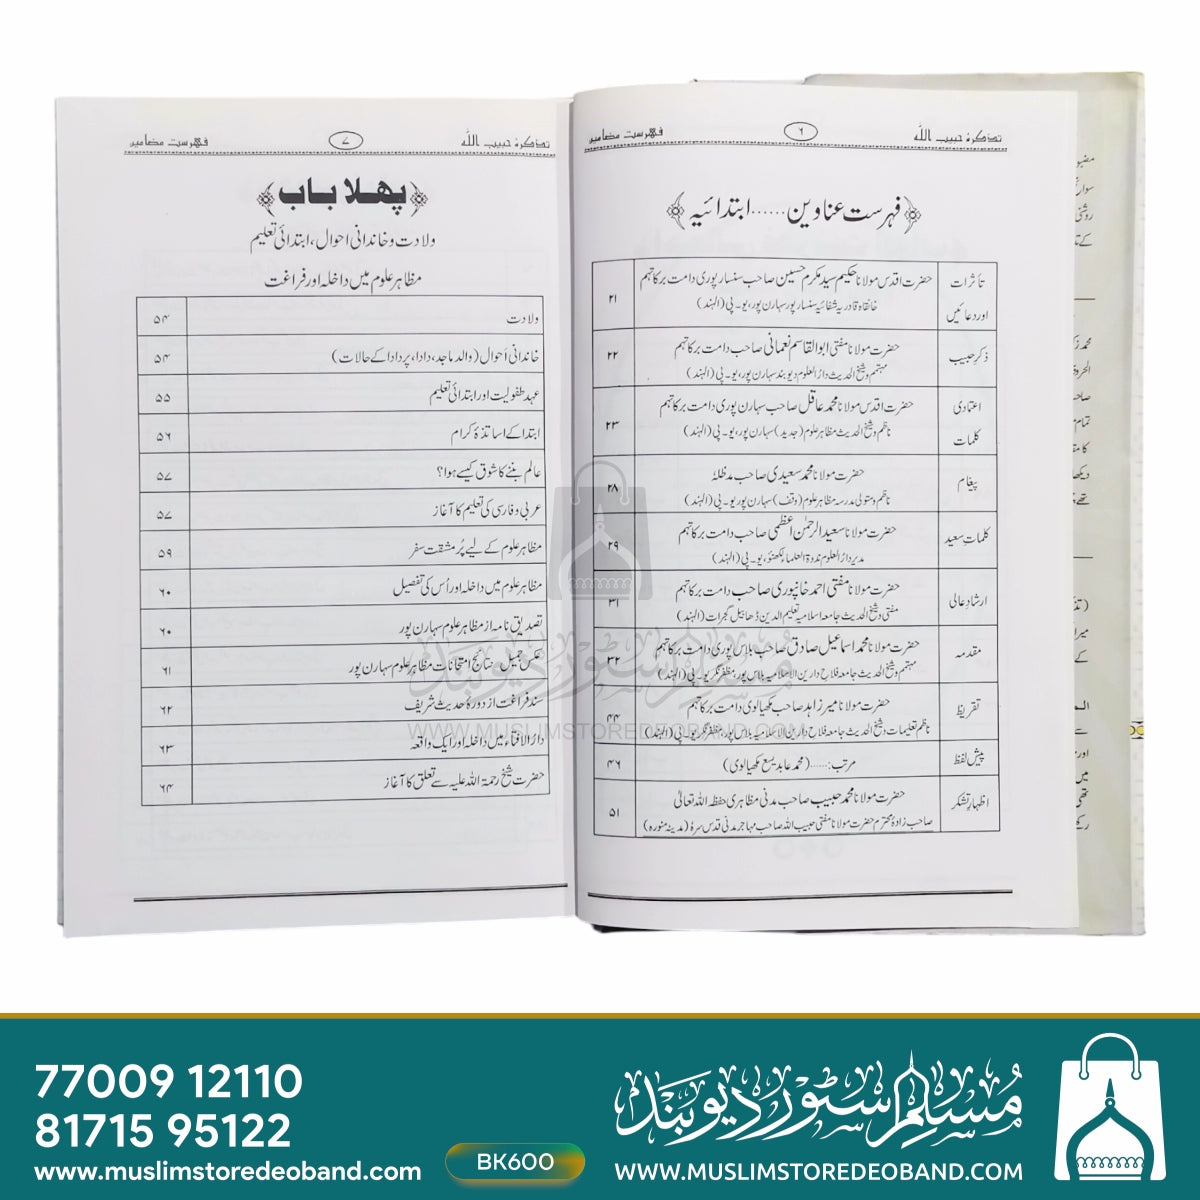 تذکرہ حبیب اللہ ۶ فہرست مضامین
فہرست عناوین ...... ابتدائیہ
تأثرات اور دعائیں حضرت اقدس مولانا حکیم سید مکرم حسین صاحب سنسار پوری دامت برکاتہم ۲۱
خانقاہ قادریہ شفائیہ سنسار پور سہارن پور، یو۔پی (الہند)
ذکرِ حبیب حضرت مولانا مفتی ابوالقاسم نعمانی صاحب دامت برکاتہم ۲۲
مہتمم و شیخ الحدیث دارالعلوم دیوبند سہارن پور، یو۔پی (الہند)
اعتمادی کلمات حضرت اقدس مولانا محمد عاقل صاحب سہارن پوری دامت برکاتہم ۲۳
ناظم و شیخ الحدیث مظاہر علوم (جدید) سہارن پور، یو۔پی (الہند)
پیغام حضرت مولانا محمد سعیدی صاحب مدظلہٗ ۲۸
ناظم و متولی مدرسہ مظاہر علوم (وقف) سہارن پور یو۔پی (الہند)
کلماتِ سعید حضرت مولانا سعید الرحمٰن اعظمی صاحب دامت برکاتہم ۲۹
مدیر دارالعلوم ندوۃ العلما لکھنؤ، یو۔پی (الہند)
ارشادِ عالی حضرت مولانا مفتی احمد خانپوری صاحب دامت برکاتہم ۳۱
مفتی و شیخ الحدیث جامعہ اسلامیہ تعلیم الدین ڈھابیل گجرات (الہند)
مقدمہ حضرت مولانا محمد اسماعیل صادق صاحب بلاس پوری دامت برکاتہم ۳۲
مہتمم و شیخ الحدیث جامعہ فلاح دارین الاسلامیہ بلاس پور، مظفر نگر یو۔پی (الہند)
تقریظ حضرت مولانا میر زاہد صاحب مکھیالوی دامت برکاتہم ۴۴
ناظم تعلیمات و شیخ الحدیث جامعہ فلاح دارین الاسلامیہ بلاس پور، مظفر نگر یو۔پی (الہند)
پیش لفظ مرتب:......(محمد عابد یسع مکھیالوی) ۴۶
اظہارِ تشکر حضرت مولانا محمد حبیب صاحب مدنی مظاہری حفظہ اللہ تعالیٰ ۵۱
صاحب زادۂ محترم حضرت مولانا مفتی حبیب اللہ صاحب مہاجر مدنی قدس سرہٗ (مدینہ منورہ)
تذکرہ حبیب اللہ ۷ فہرست مضامین
پہلا باب
ولادت و خاندانی احوال، ابتدائی تعلیم
مظاہر علوم میں داخلہ اور فراغت
ولادت ۵۴
خاندانی احوال (والد ماجد، دادا، پردادا کے حالات) ۵۴
عہد طفولیت اور ابتدائی تعلیم ۵۵
ابتدا کے اساتذۂ کرام ۵۶
عالم بننے کا شوق کیسے ہوا؟ ۵۷
عربی و فارسی کی تعلیم کا آغاز ۵۷
مظاہر علوم کے لیے پُر مشقت سفر ۵۹
مظاہر علوم میں داخلہ اور اُس کی تفصیل ۶۰
تصدیق نامہ از مظاہر علوم سہارن پور ۶۰
عکس جمیل نتائج امتحانات مظاہر علوم سہارن پور ۶۱
سند فراغت از دورۂ حدیث شریف ۶۲
دارالافتاء میں داخلہ اور ایک واقعہ ۶۳
حضرت شیخ رحمۃ اللہ علیہ سے تعلق کا آغاز ۶۴
مسلم سٹور دیوبند
WWW.MUSLIMSTOREDEOBAND.COM
77009 12110
81715 95122
www.muslimstoredeoband.com
BK600
مسلم سٹور دیوبند
WWW.MUSLIMSTOREDEOBAND.COM